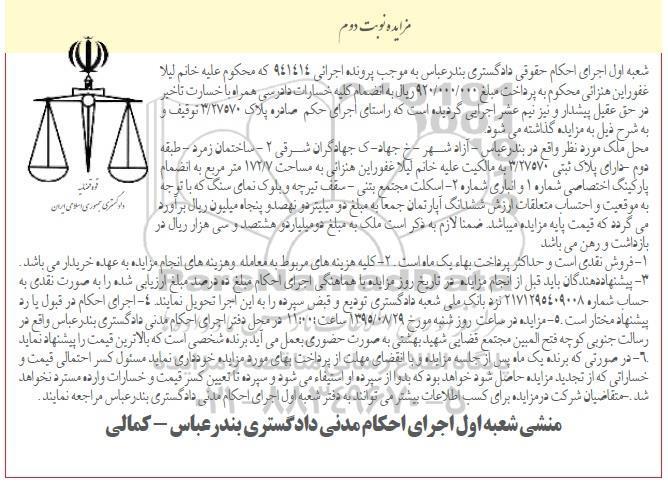 مزایده نوبت دوم
شعبه اول اجرای احکام حقوقی دادگستری بندرعباس به موجب پرونده اجرائی ۹۴۱۴۱۴ که محکوم علیه خانم لیلا
غفوراین هنزائی محکوم به پرداخت مبلغ ۹۲۰/۰۰۰/۰۰۰ ریال به انضمام کلیه خسارات دادرسی همراه با خسارت تاخیر
در حق عقیل پیشدار و نیز نیم عشر اجرایی گردیده است که راستای اجرای حکم صادره پلاک ۳/۲۷۵۷۰ توقیف و
به شرح ذیل به مزایده گذاشته می شود.
محل ملک مورد نظر واقع در بندرعباس - آزاد شهر - خ جهاد- ک جهادگران شرقی ۲ - ساختمان زمرد - طبقه
دوم -دارای پلاک ثبتی ۳/۲۷۵۷۰ به مالکیت علیه خانم لیلا غفوراین هنزائی به مساحت ۱۷۲/۷ متر مربع به انضمام
پارکینگ اختصاصی شماره ۱ و انباری شماره ۲- اسکلت مجتمع بتنی - سقف تیرچه و بلوک نمای سنگ که با توجه
به موقعیت و احتساب متعلقات ارزش ششدانگ آپارتمان جمعاً به مبلغ دو میلیتر دو نهصد و پنجاه میلیون ریال برآورد
می گردد که قیمت پایه مزایده میباشد. ضمنا لازم به ذکر است ملک به مبلغ دو میلیارد و هشتصد و سی هزار ریال در
بازداشت و رهن می باشد
۱- فروش نقدی است و حداکثر پرداخت بهاء یک ماه است . ۲- کلیه هزینه های مربوط به معامله وهزینه های انجام مزایده به عهده خریدار می باشد.
۳- پیشنهاددهندگان باید قبل از انجام مزایده در تاریخ روز مزایده با هماهنگی اجرای احکام مبلغ ده درصد مبلغ ارزیابی شده را به صورت نقدی به
حساب شماره ۲۱۷۱۲۹۵۴۰۹۰۰۸ نزد بانک ملی شعبه دادگستری تودیع و قبض سپرده را به این اجرا تحویل نمایند. ۴- اجرای احکام در قبول یا رد
پیشنهاد مختار است . ۵- مزایده در ساعت روز شنبه مورخ ۱۳۹۵/۰۸/۲۹ ساعت ۱۱:۰۰ در محل دفتر اجرای احکام مدنی دادگستری بندرعباس واقع در
رسالت جنوبی کوچه فتح المبین مجتمع قضایی شهید بهشتی به صورت حضوری بعمل می آید برنده شخصی است که بالاترین قیمت را پیشنهاد نماید
.۶- در صورتی که برنده یک ماه پس از جلسه مزایده و با انقضای مهلت از پرداخت بهای مورد مزایده خودداری نماید مسئول کسر احتمالی قیمت و
خساراتی که از تجدید مزایده حاصل شود خواهد بود که بدوا از سپرده او استیفاء می شود و سپرده تا تعیین کسر قیمت و خسارات وارده مسترد نخواهد
شد.-متقاضیان شرکت در مزایده برای کسب اطلاعات بیشتر می توانند به دفتر شعبه اول اجرای احکام مدنی دادگستری بندرعباس مراجعه نمایند.
منشی شعبه اول اجرای احکام مدنی دادگستری بندرعباس - کمالی
قوه قضائیه
دادگستری جمهوری اسلامی ایران